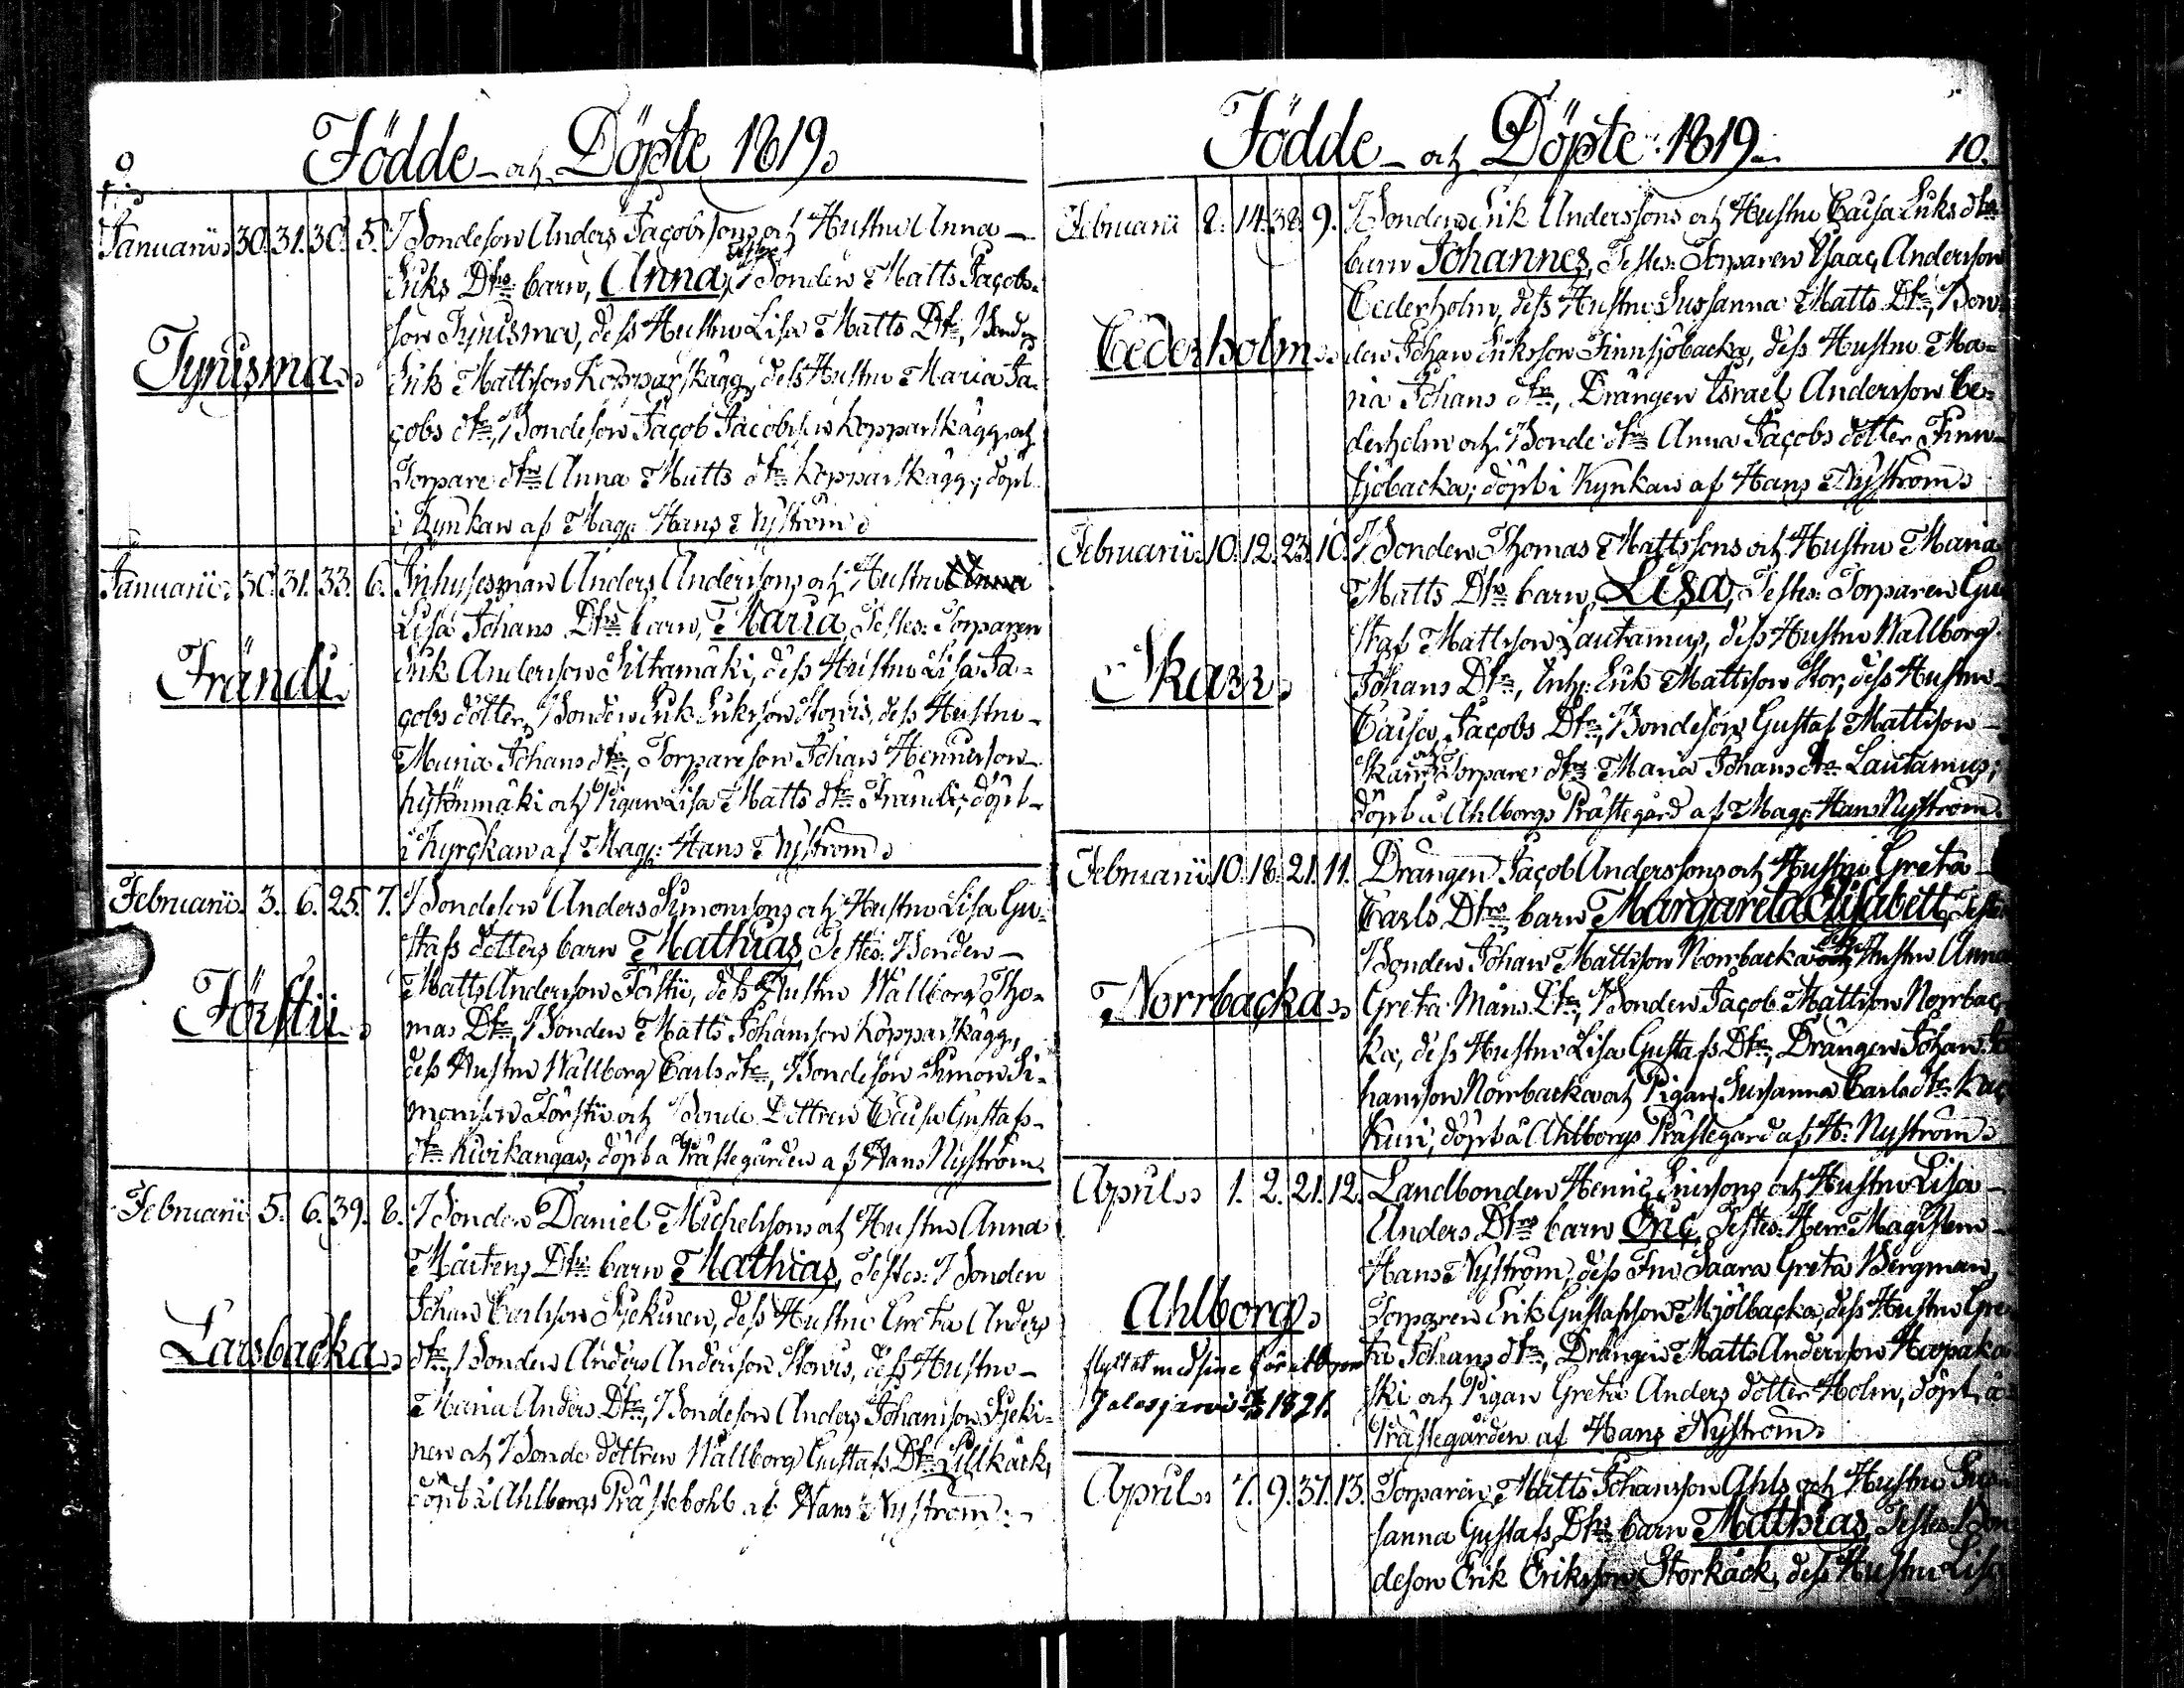 Födde och Döpte 1819.
9.
Januarii 30. 31. 30. 5. Bondeson Anders Jacobssons och Hustru Anna
Eriks Dtrs barn, Anna, Testes Bonden Matts Jacobs-
son Tynisma, dess Hustru Lisa Matts Dtr, Bonden
Tynisma
Erik Mattsson Kopparskägg, dess Hustru Maria Ja-
cobs dtr, Bondeson Jacob Jacobsson Kopparskägg och
Torpare dtr Anna Matts dtr Kopparskägg; döpt
i Kyrkan af Mag: Hans Nyström
Januarii 30. 31. 33. 6. Inhysesman Anders Anderssons och Hustru
Lisa Johans Dtrs barn, Maria, Testes: Torparen
Erik Andersson Siltamäki, dess Hustru Lisa Ja-
Frändi
cobs dotter, Bonden Erik Eriksson, dess Hustru
Maria Johans dtr, Torpareson Johan Hennersson
och Pigan Lisa Matts dtr Frändi; döpt
i Kyrckan af Mag: Hans Nyström
Februarii 3. 6. 25. 7. Bondeson Anders Simonssons och Hustru Lisa Gu-
stafs dotters barn Mathias, Testes: Bonden
Matts Andersson Förstii, dess Hustru Wallborg Tho-
Förstii
mas Dtr, Bonden Matts Johansson Kopparskägg,
dess Hustru Wallborg Carls dtr, Bondeson Simon Si-
monsson Förstii och Bonde Dottren Caisa Gustafs
dtr Kivikangas; döpt å Prästegården af Hans Nyström
Februarii 5. 6. 39. 8. Bonden Daniel Michelssons och Hustru Anna
Mårtens Dtrs barn Mathias, Testes: Bonden
Johan Carlsson, dess Hustru Greta Anders
Larsbacka
dtr, Bonden Anders Andersson, dess Hustru
Maria Anders Dtr, Bondeson Anders Johansson
och Bonde dottren Wallborg Gustafs Dtr Lillkäck,
döpt å Ahlborgs Prästebohl af Hans Nyström
Födde och Döpte 1819
10.
Februarii 8. 14. 38. 9. Bonden Erik Anderssons och Hustru Caisa Eriks dtrs
barn Johannes, Testes: Torparen Isaac Andersson
Cederholm, dess Hustru Susanna Matts Dtr, Bon-
Cederholm
den Johan Eriksson Finnsjöbacka, dess Hustru Ma-
ria Johans dtr, Drängen Israel Andersson Ce-
derholm och Bonde dtr Anna Jacobs dotter Finn-
sjöbacka; döpt i Kyrkan af Hans Nyström
Februarii 10. 12. 23. 10. Bonden Thomas Mattssons och Hustru Maria
Matts Dtrs barn, Lisa, Testes: Torparen Gu
staf Mattsson Lautamus, dess Hustru Wallborg
Skarr
Johans Dtr, Inh: Erik Mattsson Stor, dess Hustru
Caisa Jacobs Dtr, Bondeson Gustaf Mattsson
Skarr och Torpare dtr Maria Johans dtr Lautamus;
döpt å Ahlborgs Prästegård af Mag: Hans Nyström
Februarii 10. 18. 21. 11. Drängen Jacob Anderssons och Hustru Greta
Carls Dtrs barn Margareta Elisabett, Testes
Bonden Johan Mattsson Norrbacka dess Hustru Anna
Norrbacka
Greta Måns Dtr, Bonden Jacob Mattsson Norrbac
ka, dess Hustru Lisa Gustafs Dtr, Drängen Johan Jo
hansson Norrbacka och Pigan Susanna Carls dtr
döpt å Ahlborgs Prästegård af H: Nyström
April 1. 2. 21. 12. Landbonden Henric Ericssons och Hustru Lisa
Anders Dtrs barn Eric, Testes: Herr Magistern
Hans Nyström, dess Fru Saara Greta Bergman,
Ahlborg
Torparen Erik Gustafsson Mjölbacka, dess Hustru Gre
flyttat med sina föräldrar
ta Johans dtr, Drängen Matts Andersson Haapako
Jalasjärvi 1821.
ski och Pigan Greta Anders dotter Holm, döpt å
Prästegården af Hans Nyström
April 7. 9. 37. 13. Torparen Matts Johansson Ahls och Hustru Su
sanna Gustafs Dtrs barn Mathias, Testes: Bon
deson Erik Eriksson Storkäck, dess Hustru Lisa